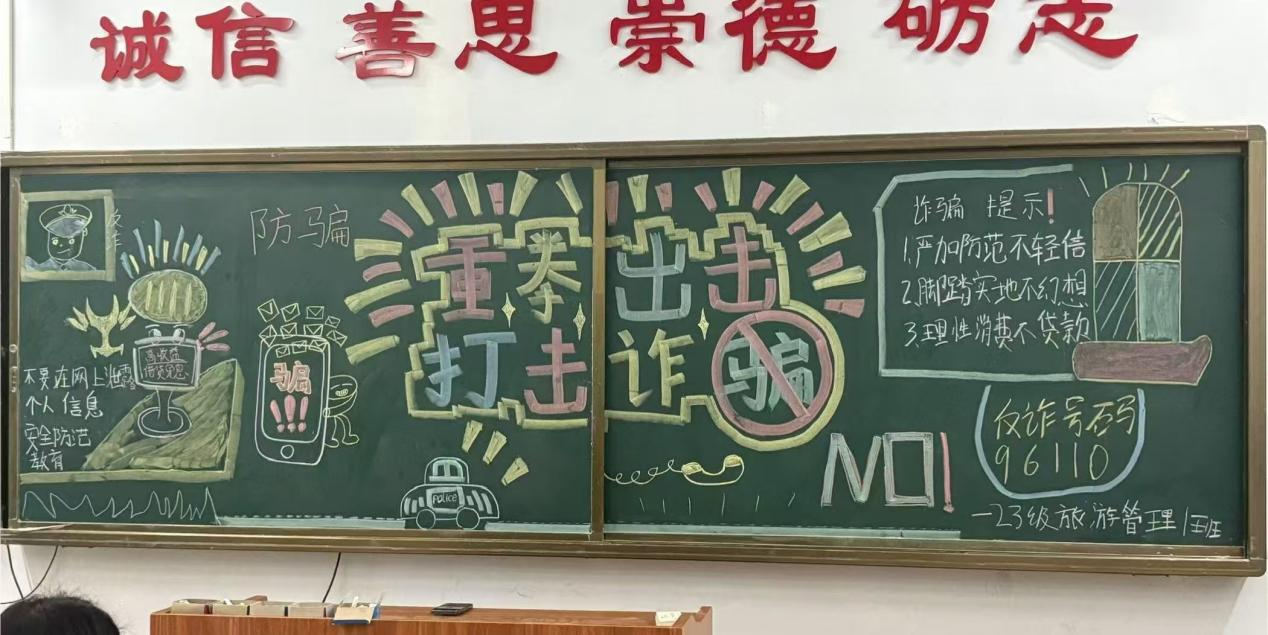 诚信 善思 崇德 砺志
防骗
重拳出击
打击诈骗
诈骗 提示!
1.严加防范不轻信
2.脚踏实地不幻想
3.理性消费不贷款
不要在网上泄露
个人信息
安全防范
教育
高收益
骗
!!!
POLICE
NO!
反诈号码
96110
—23级旅游管理1班